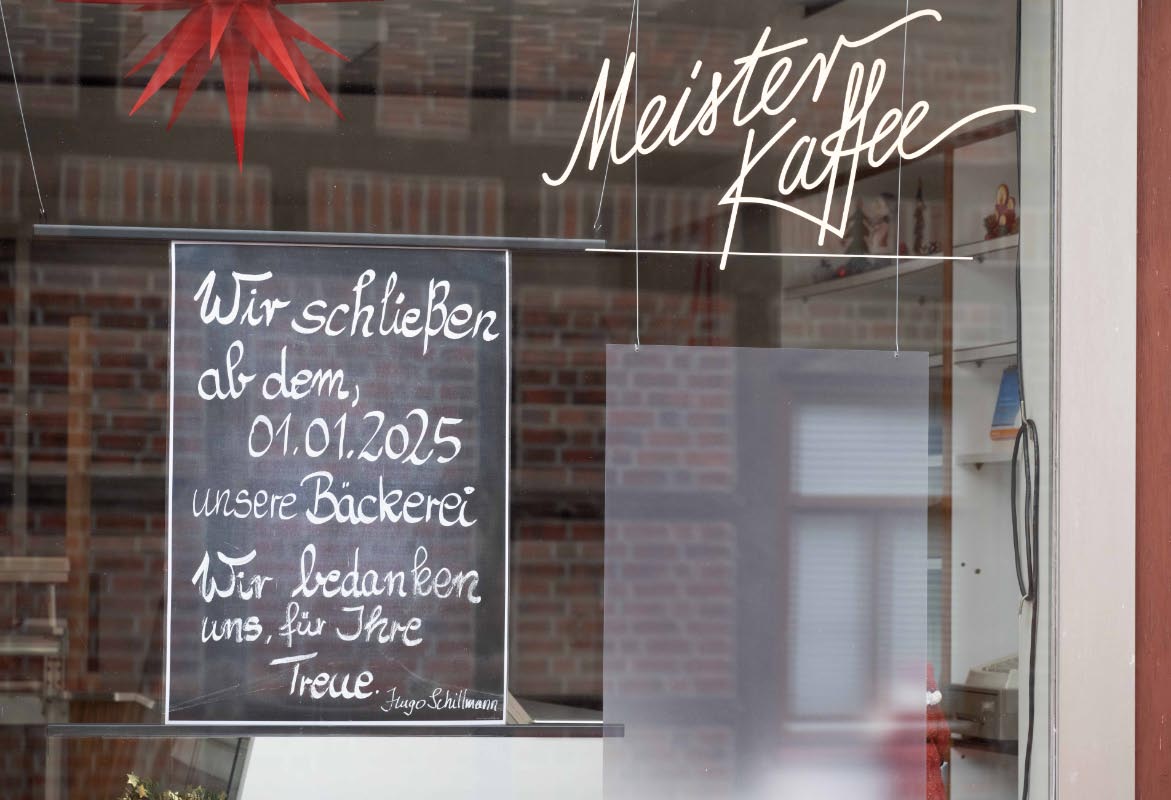 Meister
Kaffee
Wir schließen
ab dem,
01.01.2025
unsere Bäckerei
Wir bedanken
uns, für Ihre
Treue.
Hugo Schillmann